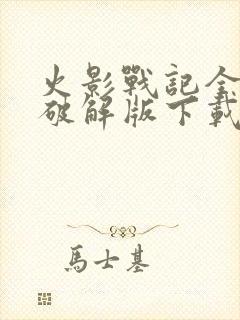 火影戰記全
破解版下載
馬士基